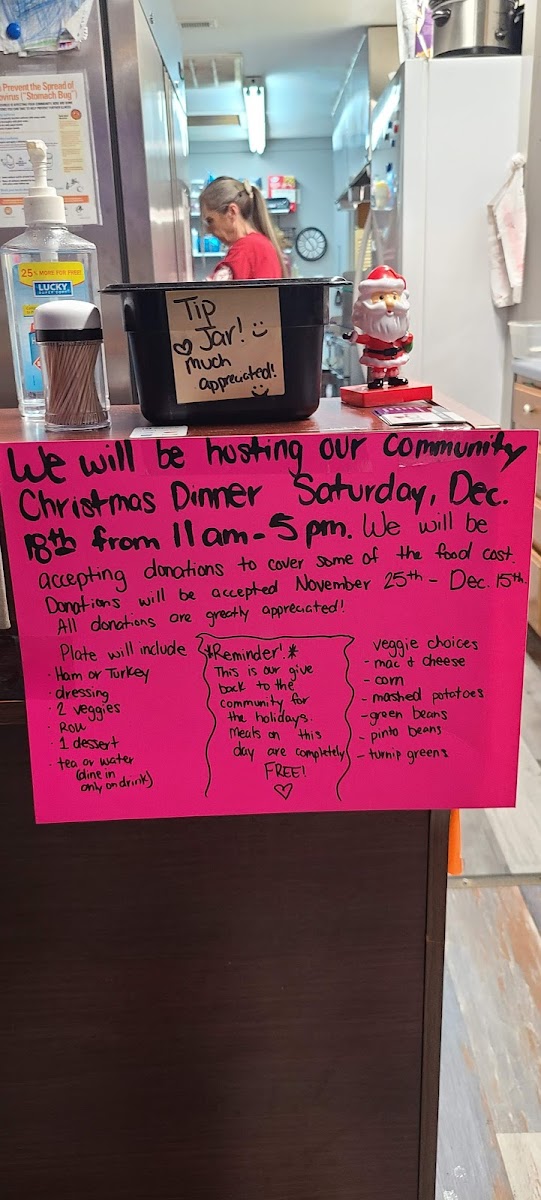 Prevent the Spread of
ovirus ("Stomach Bug")
25% MORE FOR FREE!
LUCKY
SUPER SOFT
Tip
Jar!
much
appreciated!
We will be hosting our Community
Christmas Dinner Saturday, Dec.
18th from 11am-5pm. We will be
accepting donations to cover some of the food cost.
Donations will be accepted November 25th - Dec. 15th.
All donations are greatly appreciated!
Plate will include
· Ham or Turkey
· dressing
· 2 veggies
· Roll
· 1 dessert
· tea or water
(dine in
only on drink)
*Reminder!*
This is our give
back to the
community for
the holidays.
Meals on this
day are completely
FREE!
veggie choices
- mac & cheese
- corn
- mashed potatoes
- green beans
- pinto beans
- turnip greens